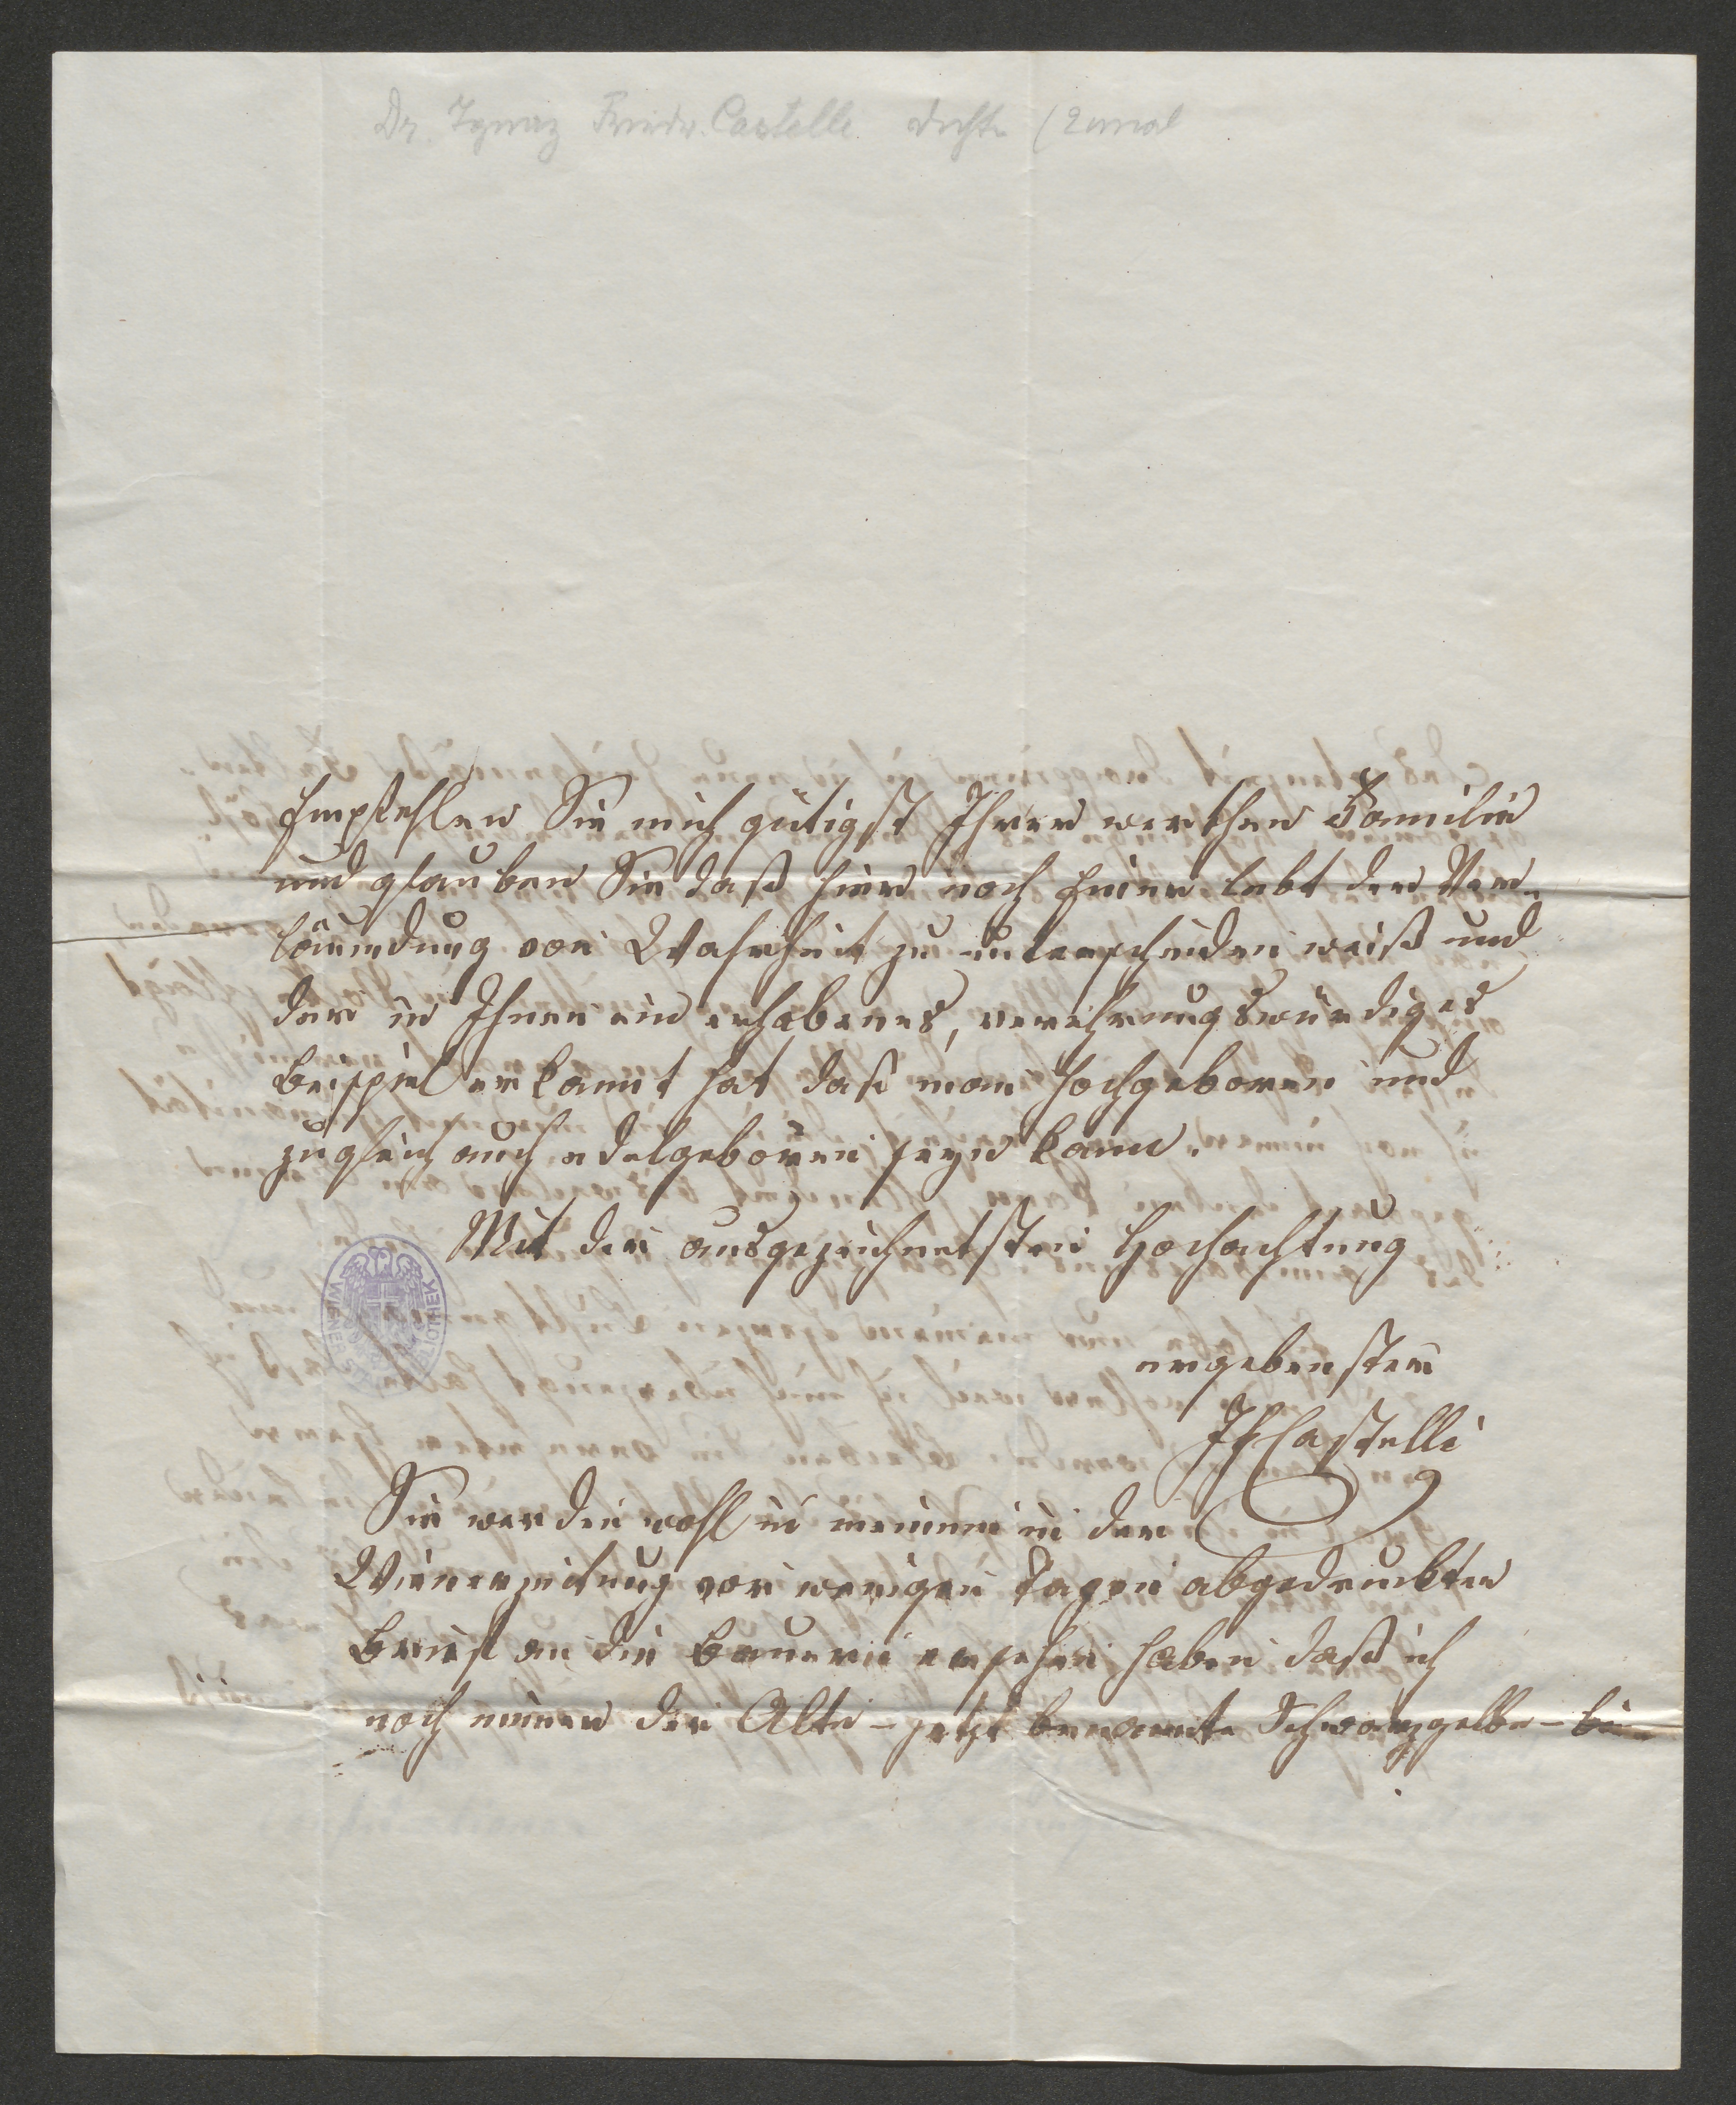 Dr. Ignaz Friedr. Castelli Dichter (2 mal
Empfehlen Sie mich gütigst Ihrer werthen Familie
und glauben Sie daß hier noch Einer lebt der Ver-
läumdung von Wahrheit zu unterscheiden weiß und
der in Ihnen ein erhabenes, verehrungswürdiges
Beispiel erkannt hat daß man hochgeboren und
zugleich auch edelgeboren seyn kann.
Mit der ausgezeichnetsten Hochachtung
ergebenster
IFCastelli
Sie werden wohl in meinem in der
Wienerzeitung vor wenigen Tagen abgedruckten
Brief an die Bauern ersehen haben daß ich
noch immer der Alte – jetzt benannte Schwarzgelbe – bin